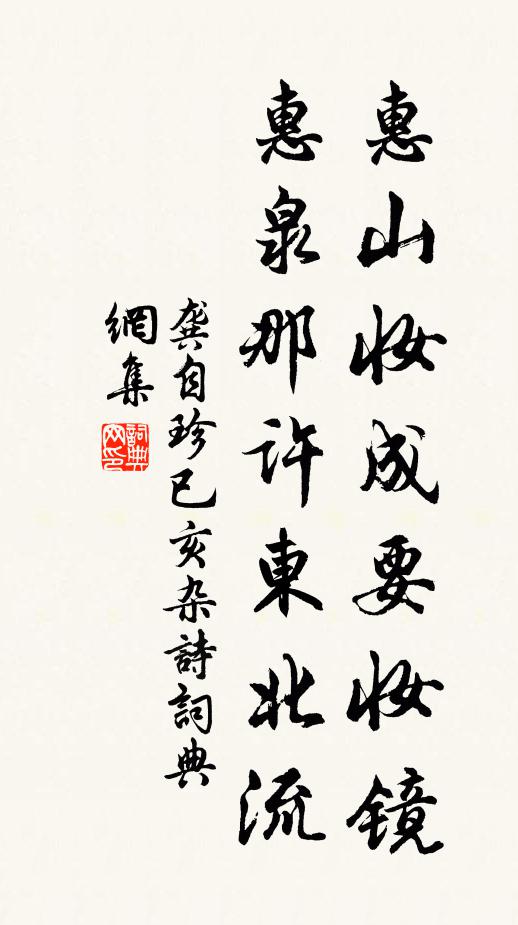 惠山妆成要妆镜
惠泉那许東北流
龚自珍己亥杂詩詞典
網集
詞典
网印